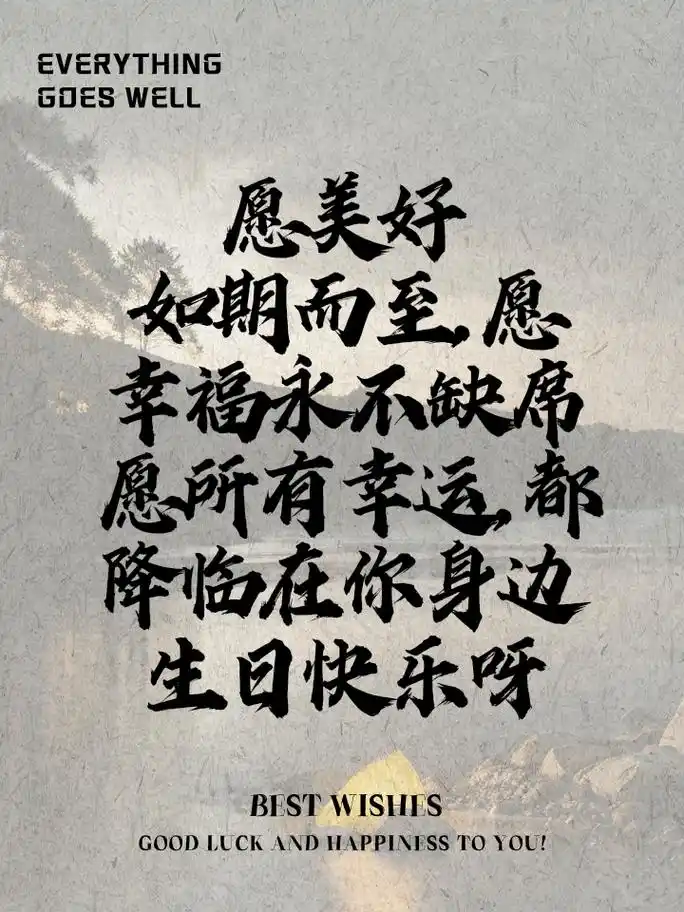 EVERYTHING
GOES WELL
愿美好
如期而至,愿
幸福永不缺席
愿所有幸运,都
降临在你身边
生日快乐呀
BEST WISHES
GOOD LUCK AND HAPPINESS TO YOU!